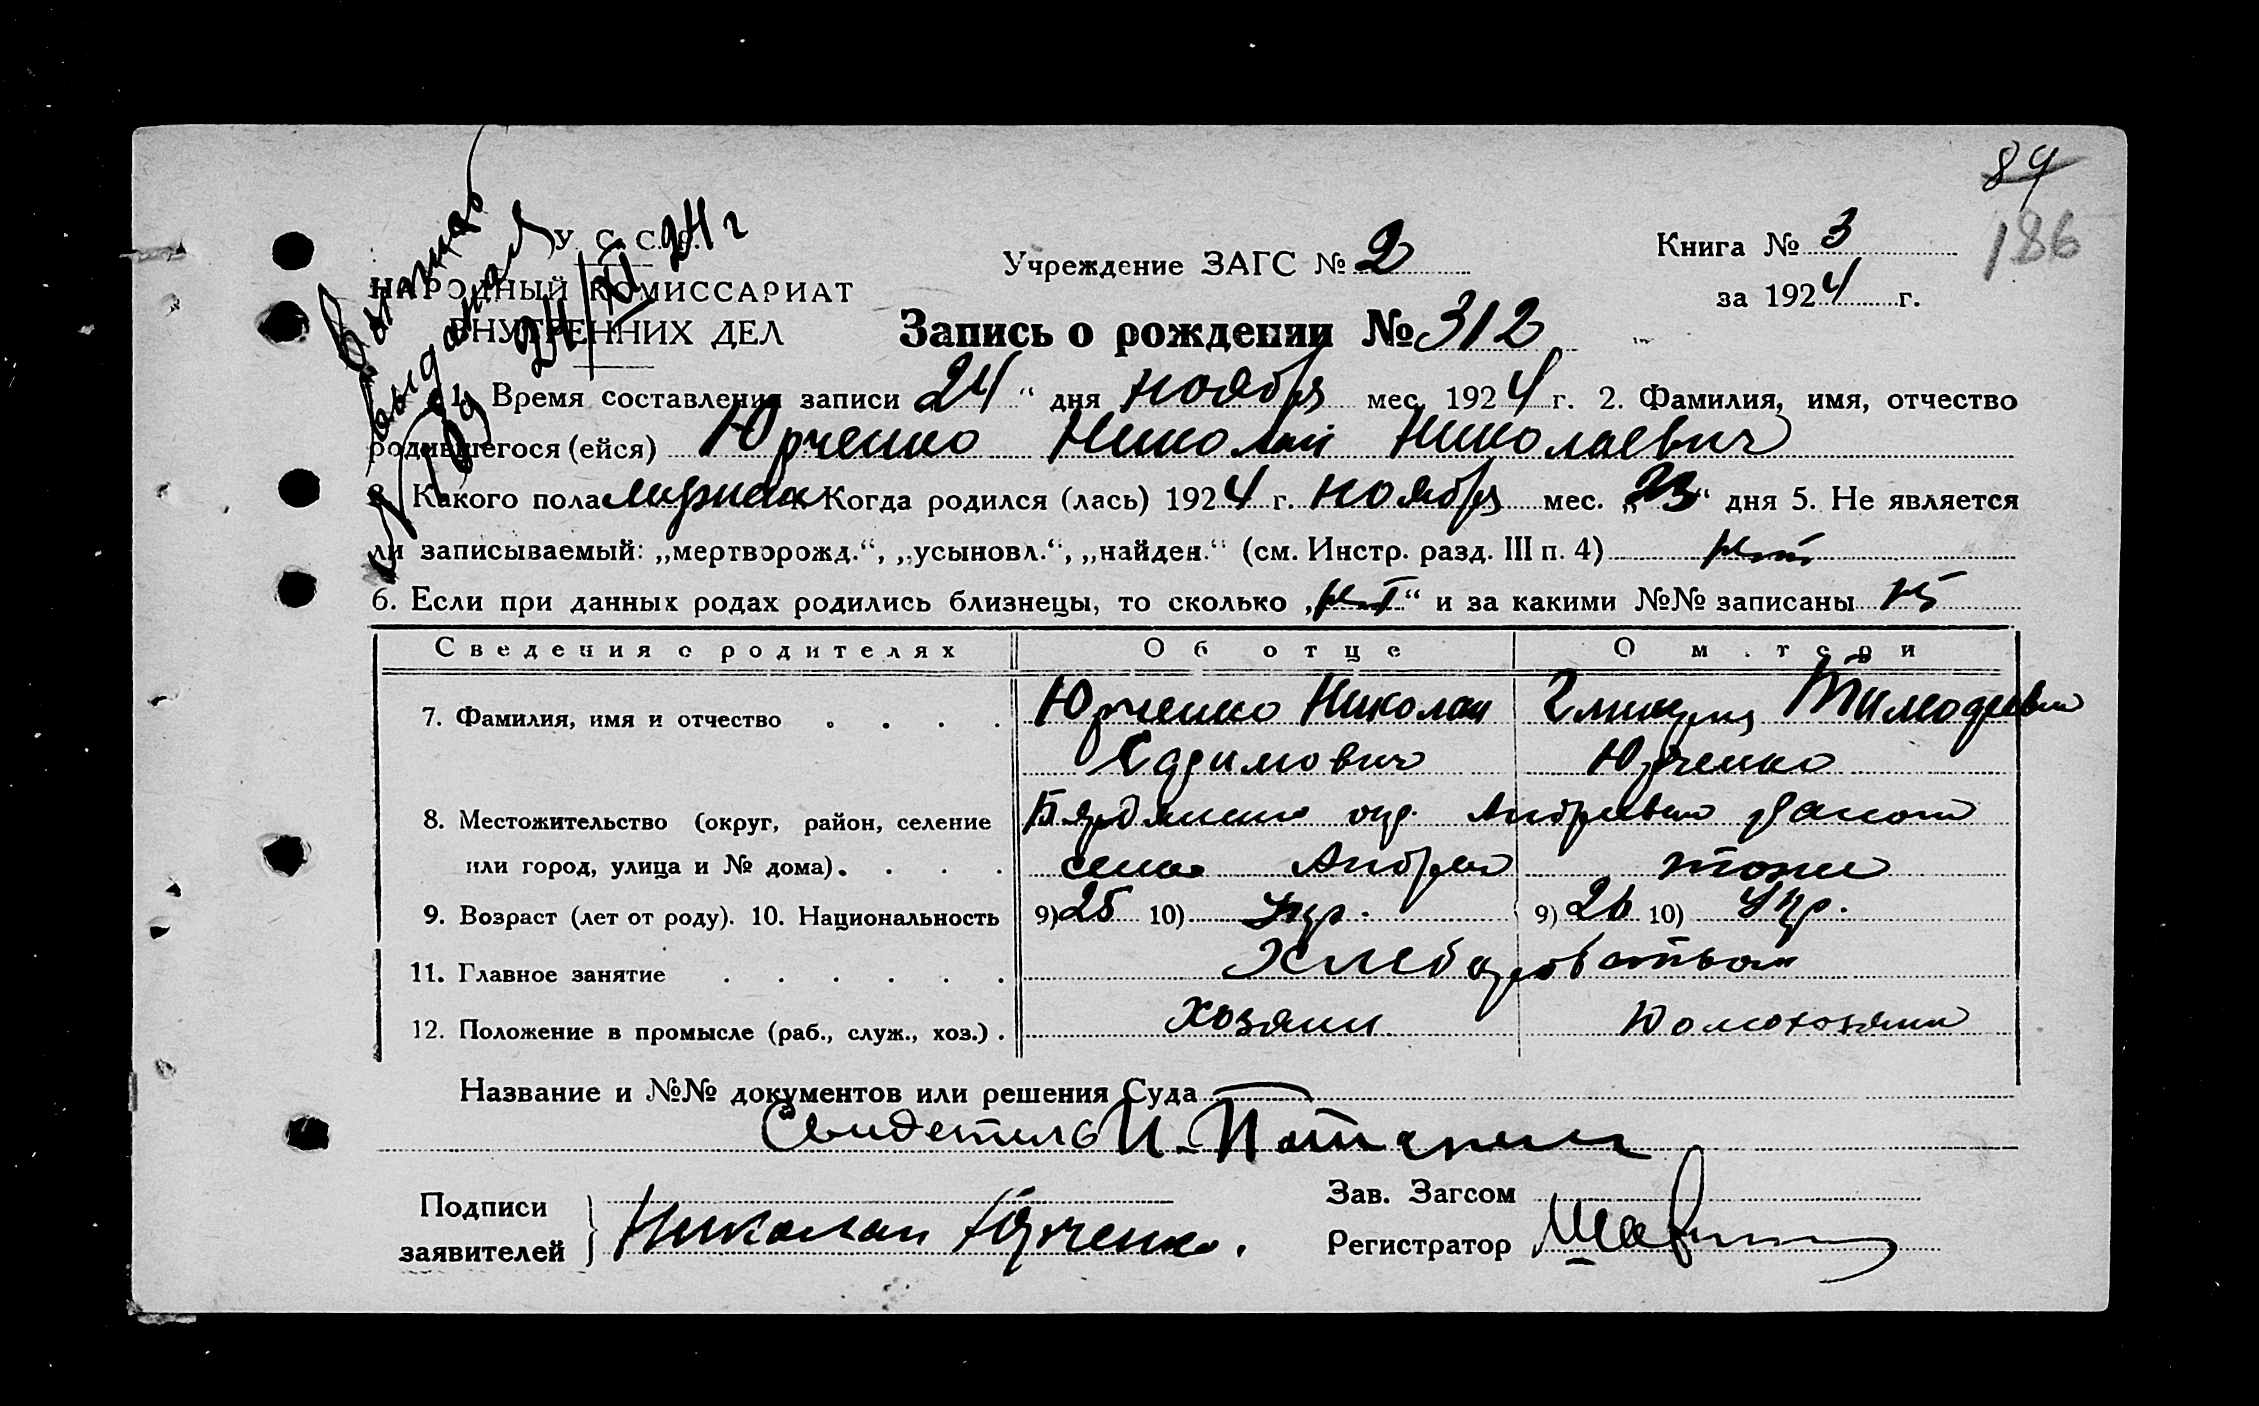 89
186
У. С. С. Р.
НАРОДНЫЙ КОМИССАРИАТ
ВНУТРЕННИХ ДЕЛ
Выпись
выдана
24/XI 24 г
Учреждение ЗАГС № 2
Книга № 3
за 1924 г.
Запись о рождении № 312
1. Время составления записи 24 “ дня ноября мес. 1924 г. 2. Фамилия, имя, отчество
родившегося (ейся) Юрченко Николай Николаевич
3. Какого пола 4. Когда родился (лась) 1924 г. ноября мес. „23“ дня 5. Не является
ли записываемый: „мертворожд.“, „усыновл.“, „найден.“ (см. Инстр. разд. III п. 4) нет
6. Если при данных родах родились близнецы, то сколько „нет“ и за какими №№ записаны
Сведения о родителях Об отце О матери
7. Фамилия, имя и отчество . . . . Юрченко Николай Тимофеевна
Юрченко
8. Местожительство (округ, район, селение Бердянского окр. Андреевского района
или город, улица и № дома). . . . село тоже
9. Возраст (лет от роду). 10. Национальность 9) 25 10) Укр. 9) 26 10) Укр.
11. Главное занятие . . . . . . Хлебопашество
12. Положение в промысле (раб., служ., хоз.) . хозяин
Название и №№ документов или решения Суда
Свидетель И.
Подписи
заявителей } Николай Юрченко.
Зав. Загсом
Регистратор